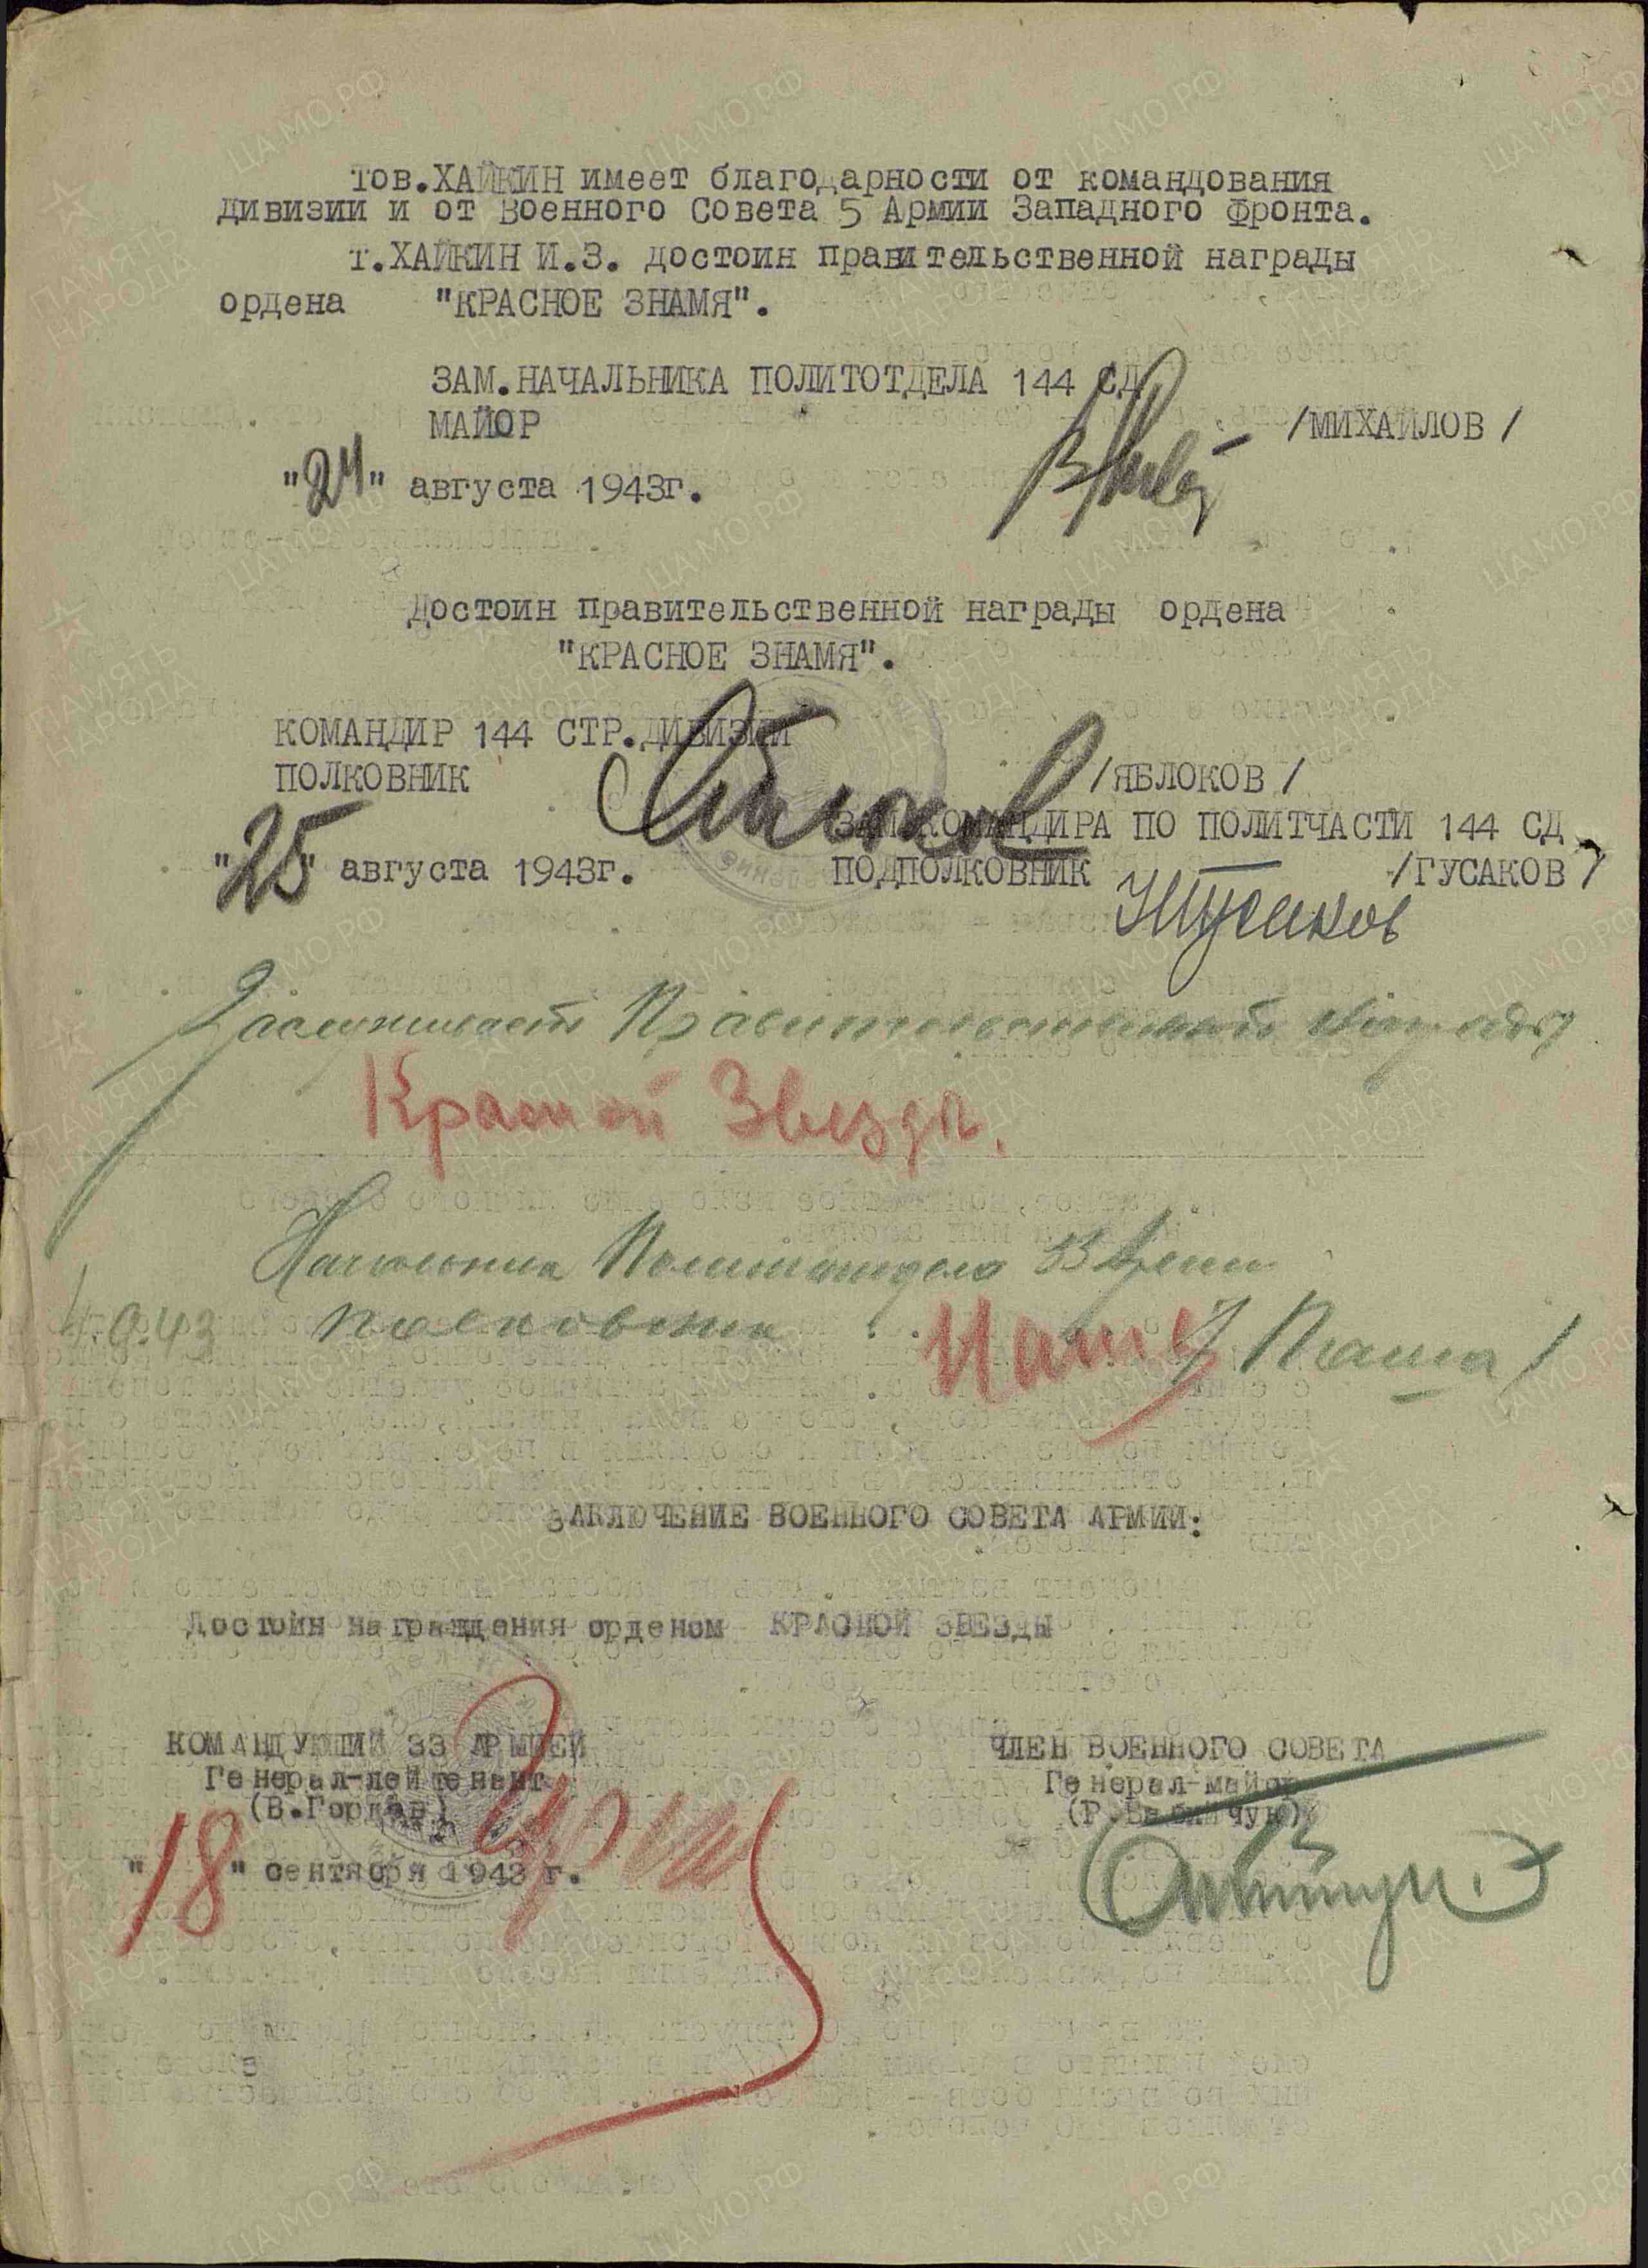 Тов.ХАЙКИН имеет благодарности от командования
дивизии и от Военного Совета 5 Армии Западного Фронта.
т.ХАЙКИН И.З. достоин правительственной награды
ордена "КРАСНОЕ ЗНАМЯ".
ЗАМ.НАЧАЛЬНИКА ПОЛИТОТДЕЛА 144 СД
МАЙОР /МИХАЙЛОВ/
"24" августа 1943г.
Достоин правительственной награды ордена
"КРАСНОЕ ЗНАМЯ".
КОМАНДИР 144 СТР.ДИВИЗИИ
ПОЛКОВНИК /ЯБЛОКОВ/
ЗАМ.КОМАНДИРА ПО ПОЛИТЧАСТИ 144 СД
"25" августа 1943г. ПОДПОЛКОВНИК /ГУСАКОВ/
Заслуживает Правительственной награды
Красной Звезды.
Начальник Политотдела 33 Армии
4.9.43 полковник
ЗАКЛЮЧЕНИЕ ВОЕННОГО СОВЕТА АРМИИ:
Достоин награждения орденом КРАСНОЙ ЗВЕЗДЫ
КОМАНДУЮЩИЙ 33 АРМИЕЙ ЧЛЕН ВОЕННОГО СОВЕТА
Генерал-лейтенант Генерал-майор
(В.Гордов) (Р.Бабийчук)
"18" сентября 1943 г.
ЦАМО РФ
ПАМЯТЬ НАРОДА